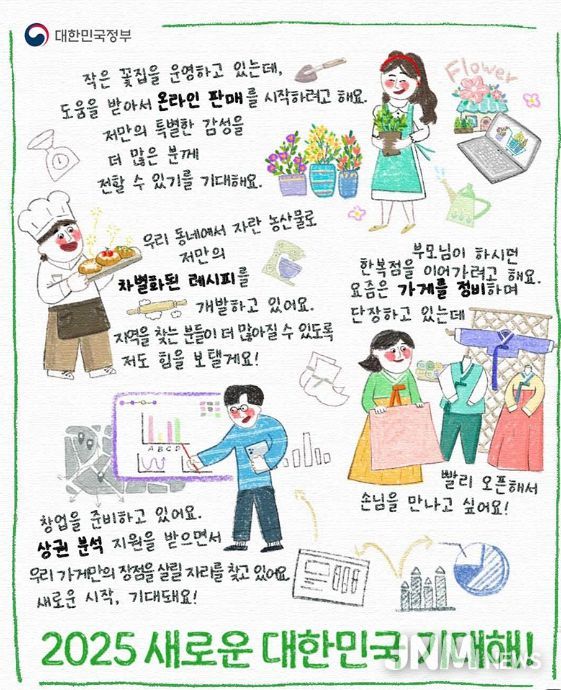 대한민국정부
작은 꽃집을 운영하고 있는데,
도움을 받아서 온라인 판매를 시작하려고 해요.
저만의 특별한 감성을
더 많은 분께
전할 수 있기를 기대해요.
Flower
우리 동네에서 자란 농산물로
저만의
차별화된 레시피를
개발하고 있어요.
지역을 찾는 분들이 더 많아질 수 있도록
저도 힘을 보탤게요!
부모님이 하시던
한복점을 이어가려고 해요.
요즘은 가게를 정비하며
단장하고 있는데
빨리 오픈해서
손님을 만나고 싶어요!
A B C D
창업을 준비하고 있어요.
상권 분석 지원을 받으면서
우리 가게만의 장점을 살릴 자리를 찾고 있어요
새로운 시작, 기대돼요!
2025 새로운 대한민국 기대해!
JNM NEWS